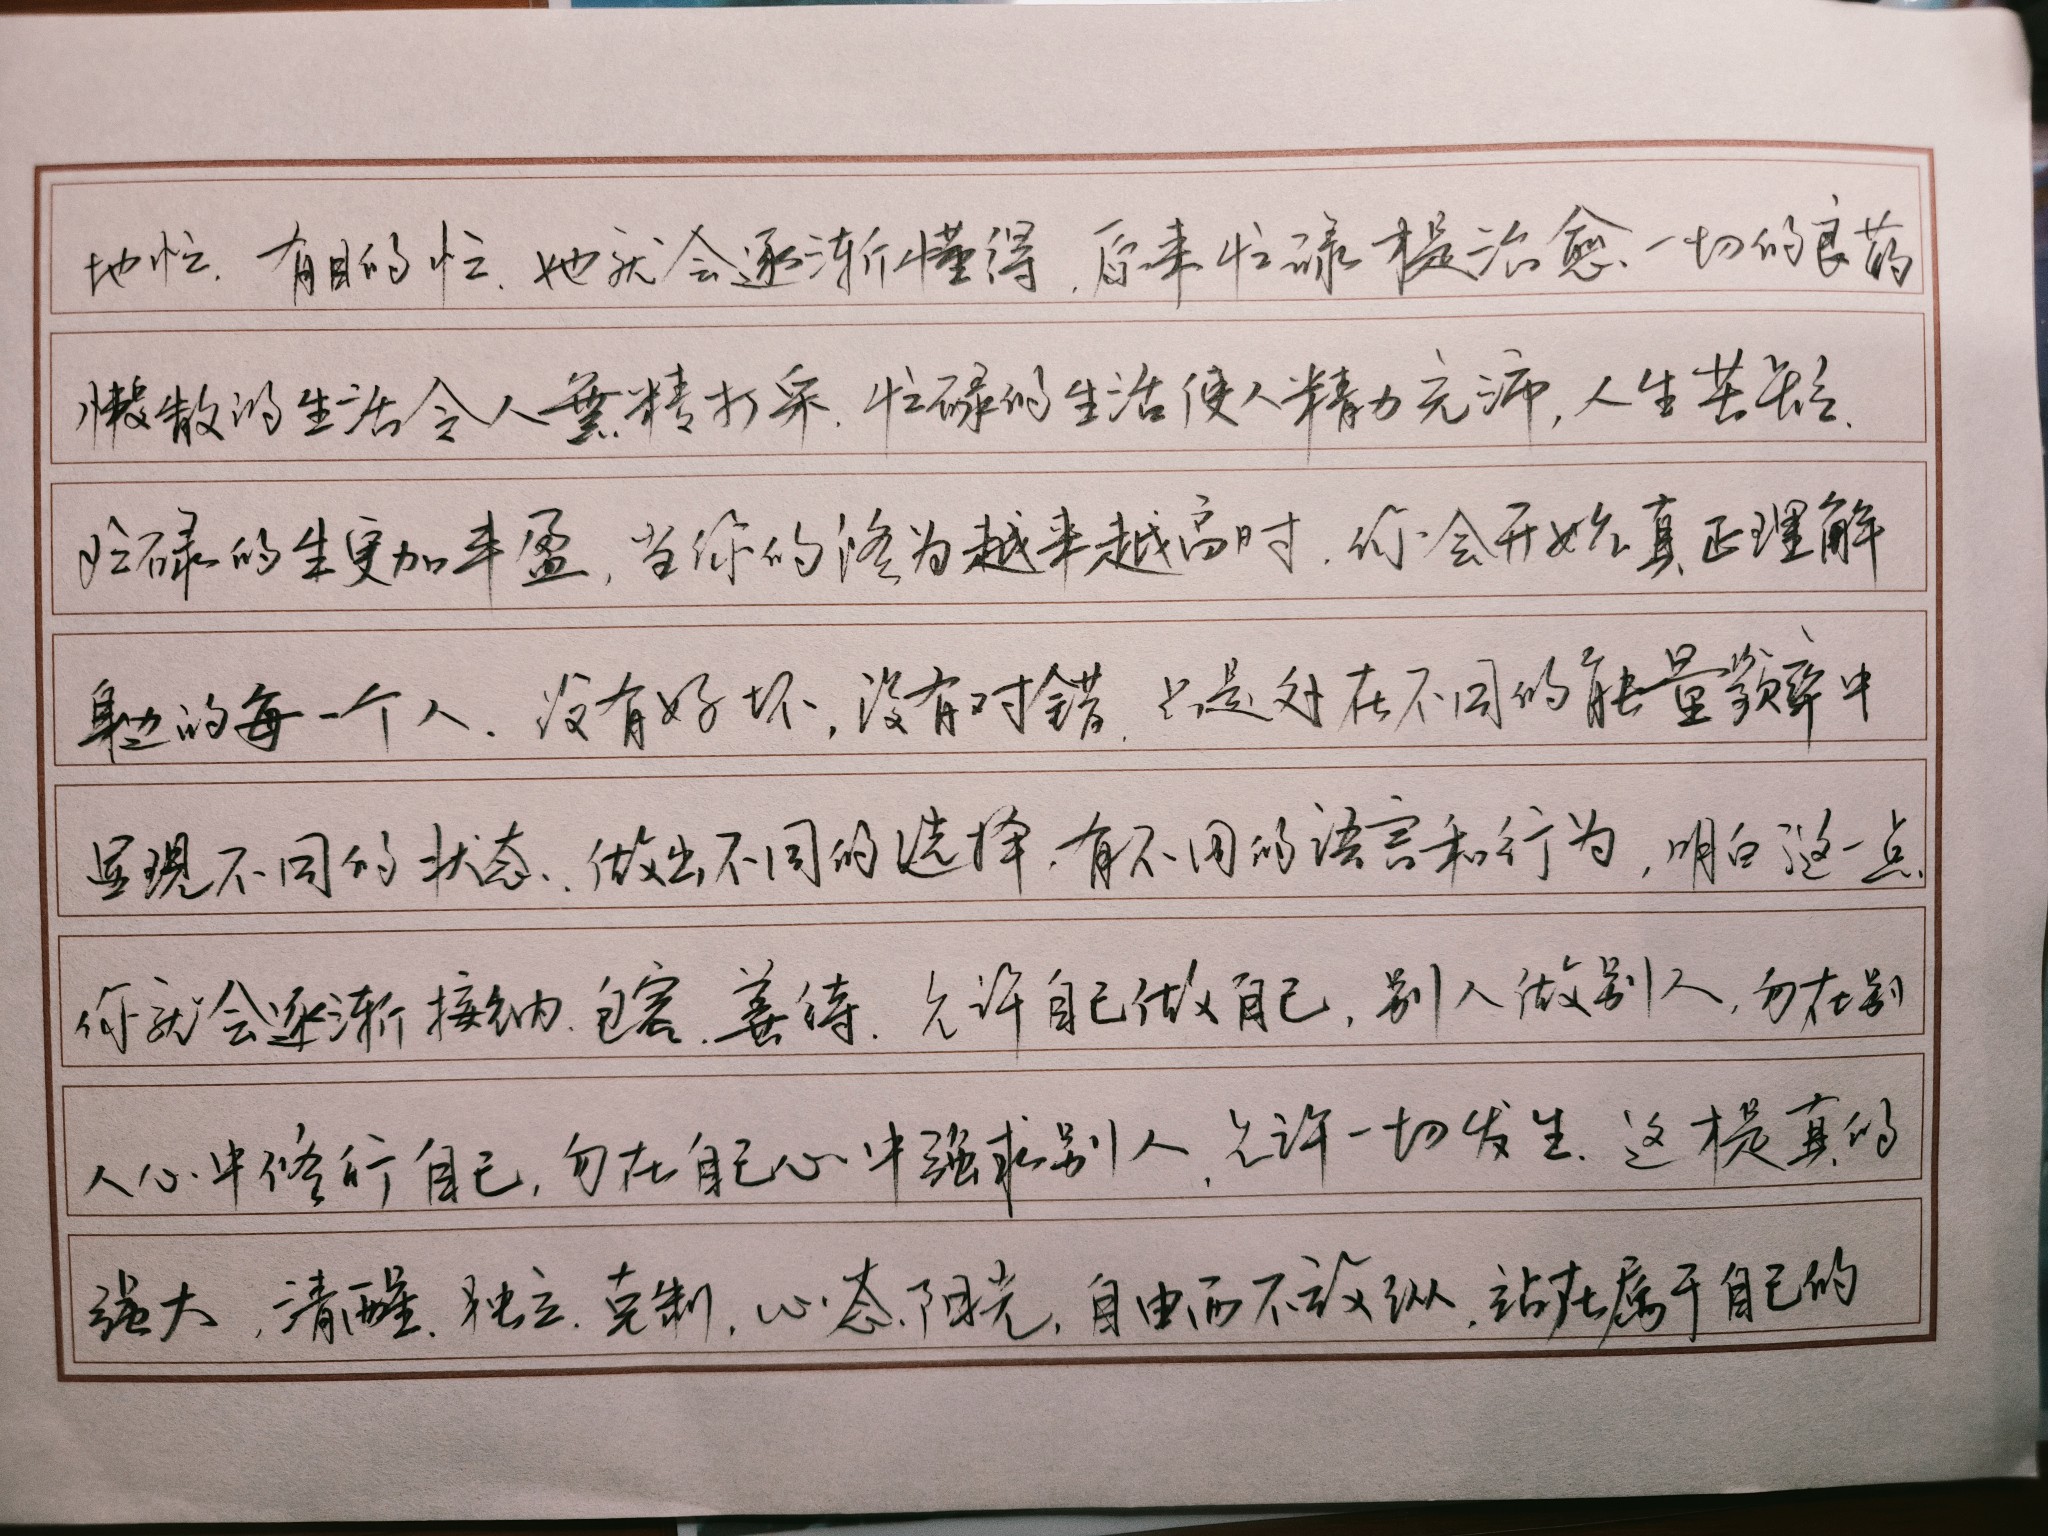 地忙、有目的忙、她就会逐渐懂得,原来忙碌才是治愈一切的良药
懒散的生活令人無精打采、忙碌的生活使人精力充沛,人生苦短、
忙碌的生更加丰盈,当你的修为越来越高时、你会开始真正理解
身边的每一个人、没有好坏,没有对错、只是处在不同的能量频率中
呈现不同的状态、做出不同的选择、有不同的语言和行为,明白这一点
你就会逐渐接纳、包容、善待、允许自己做自己,别人做别人,勿在别
人心中修行自己,勿在自己心中强求别人,允许一切发生、这才是真的
强大,清醒、独立、克制,心态阳光,自由而不放纵、站在属于自己的